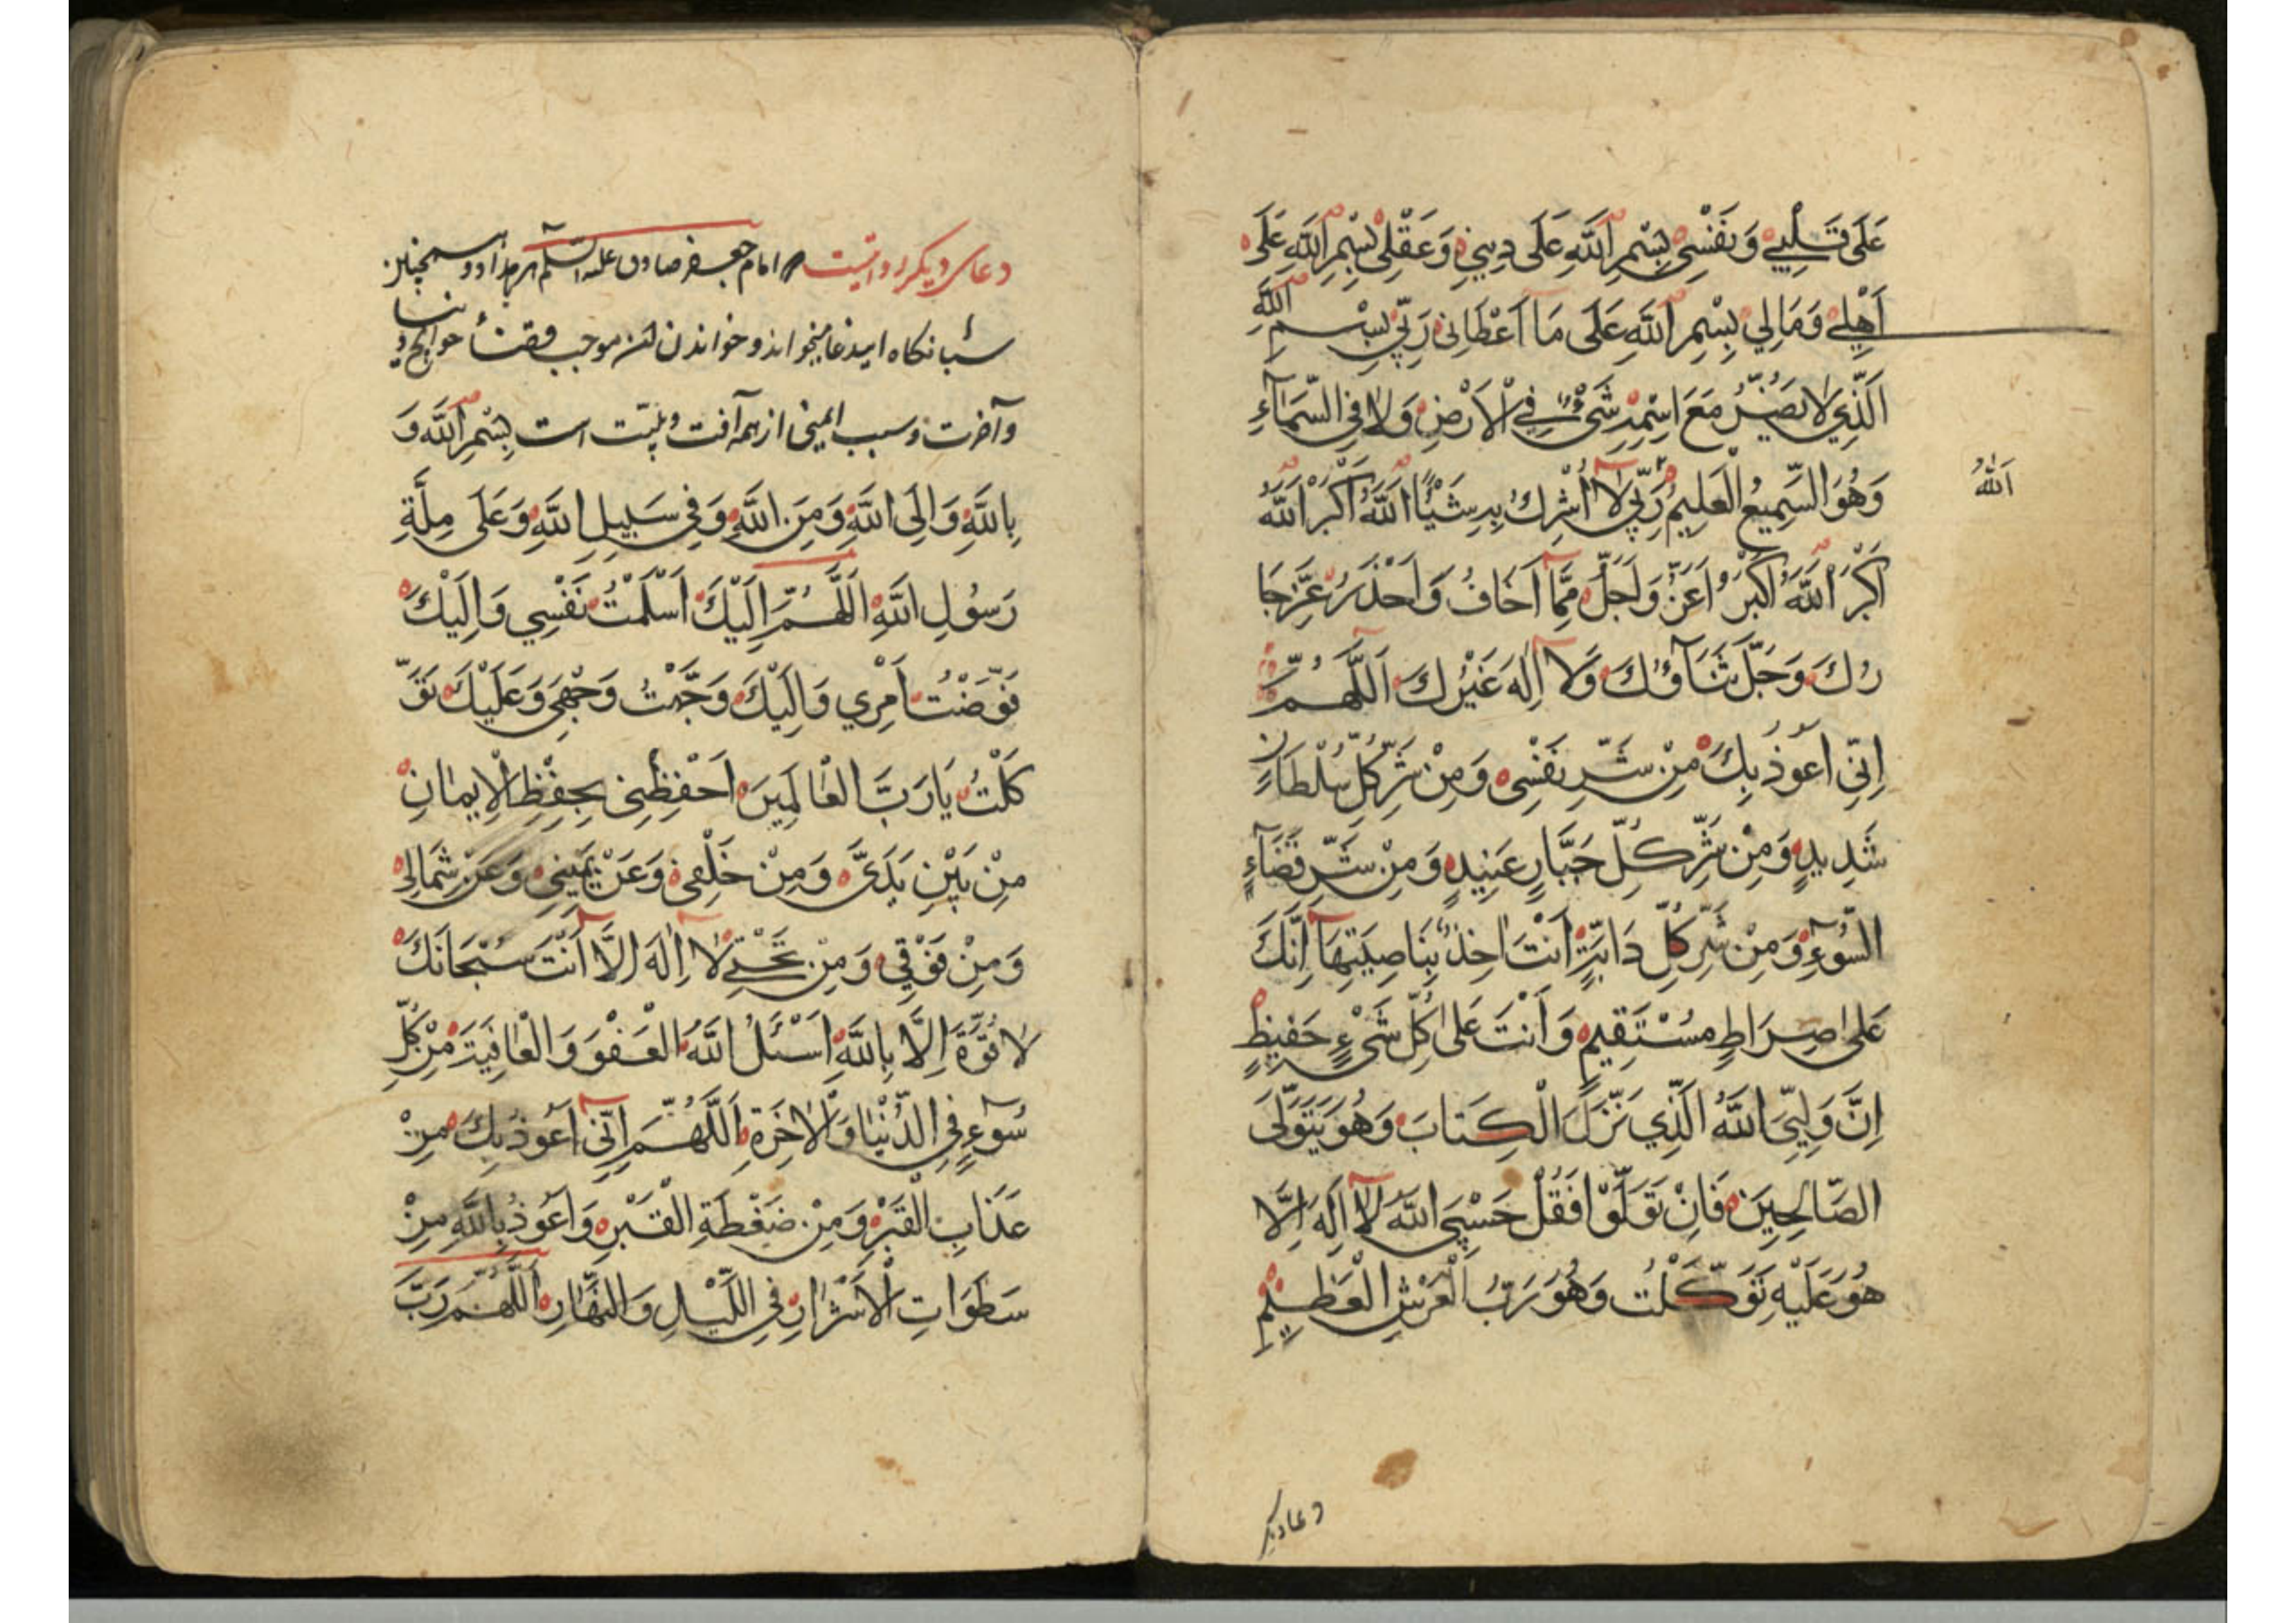 عَلَى قَلْبِي وَنَفْسِي بِسْمِ اللَّهِ عَلَى دِينِي وَعَقْلِي بِسْمِ اللَّهِ عَلَى
أَهْلِي وَمَالِي بِسْمِ اللَّهِ عَلَى مَا أَعْطَانِي رَبِّي بِسْمِ اللَّهِ
الَّذِي لَا يَضُرُّ مَعَ اسْمِهِ شَيْءٌ فِي الْأَرْضِ وَلَا فِي السَّمَآءِ
وَهُوَ السَّمِيعُ الْعَلِيمُ رَبِّي لَا أُشْرِكُ بِهِ شَيْئًا اَللَّهُ أَكْبَرُ اَللَّهُ
اَللّٰهُ
أَكْبَرُ اَللَّهُ أَكْبَرُ وَأَعَزُّ وَأَجَلُّ مِمَّا أَخَافُ وَأَحْذَرُ عَزَّ جَا
رُكَ وَجَلَّ ثَنَآؤُكَ وَلَا إِلَهَ غَيْرُكَ اَللَّهُمَّ
اِنِّي اَعُوذُ بِكَ مِنْ شَرِّ نَفْسِي وَمِنْ شَرِّ كُلِّ سُلْطَانٍ
شَدِيدٍ وَمِنْ شَرِّ كُلِّ جَبَّارٍ عَنِيدٍ وَمِنْ شَرِّ قَضَآءِ
السُّوءِ وَمِنْ شَرِّ كُلِّ دَابَّةٍ أَنْتَ اخِذٌ بِنَاصِيَتِهَا إِنَّكَ
عَلَى صِرَاطٍ مُسْتَقِيمٍ وَأَنْتَ عَلَى كُلِّ شَيْءٍ حَفِيظٍ
اِنَّ وَلِيِّيَ اللَّهُ الَّذِي نَزَّلَ الْكِتَابَ وَهُوَ يَتَوَلَّى
الصَّالِحِينَ فَاِنْ تَوَلَّوْا فَقُلْ حَسْبِيَ اللَّهُ لَا اِلَهَ اِلَّا
هُوَ عَلَيْهِ تَوَكَّلْتُ وَهُوَ رَبُّ الْعَرْشِ الْعَظِيمِ
دعا دیگر
دعای دیگر روایتست امام جعفر صادق علیه السلام هر بامداد و همچنین
شبانگاه این دعا میخواند و خواندن موجب قضأ حوایج دنیا
و آخرت و سبب ایمنی از همه آفت و بلیّت است بِسْمِ اللَّهِ وَ
بِاللَّهِ وَاِلَى اللَّهِ وَمِنَ اللَّهِ وَفِي سَبِيلِ اللَّهِ وَعَلَى مِلَّةِ
رَسُولِ اللَّهِ اَللَّهُمَّ اِلَيْكَ اَسْلَمْتُ نَفْسِي وَاِلَيْكَ
فَوَّضْتُ اَمْرِي وَاِلَيْكَ وَجَّهْتُ وَجْهِي وَعَلَيْكَ تَوَ
كَّلْتُ يَا رَبَّ الْعَالَمِينَ اَحْفِظْنِي بِحِفْظِ الْاِيمَانِ
مِنْ بَيْنِ يَدَيَّ وَمِنْ خَلْفِي وَعَنْ يَمِينِي وَعَنْ شِمَالِي
وَمِنْ فَوْقِي وَمِنْ تَحْتِي لَا اِلَهَ اِلَّا اَنْتَ سُبْحَانَكَ
لَا قُوَّةَ اِلَّا بِاللَّهِ اَسْئَلُ اللَّهَ الْعَفْوَ وَالْعَافِيَةَ مِنْ كُلِّ
سُوءٍ فِي الدُّنْيَا وَالْاخِرَةِ اَللَّهُمَّ اِنِّي اَعُوذُ بِكَ مِنْ
عَذَابِ الْقَبْرِ وَمِنْ ضَغْطَةِ الْقَبْرِ وَاَعُوذُ بِاللَّهِ مِنْ
سَطَوَاتِ الْاَشْرَارِ فِي اللَّيْلِ وَالنَّهَارِ اَللَّهُمَّ رَبَّ